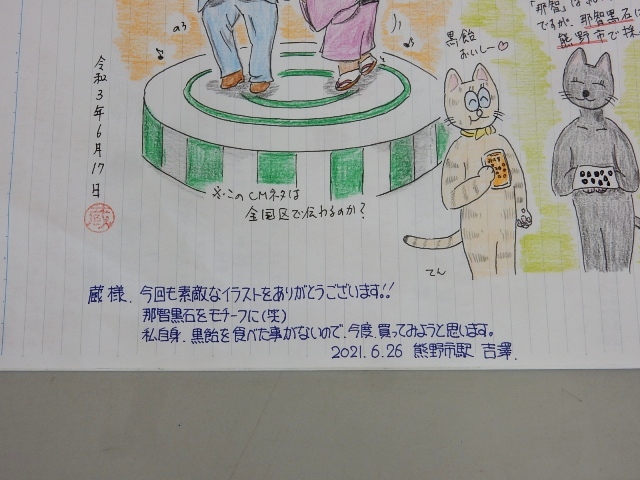 「那智」は
ですが、那智黒石は
熊野市で採
黒飴
おいしー♡
令和3年6月17日
※このCMネタは
全国区で伝わるのか?
てん
蔵様、今回も素敵なイラストをありがとうございます!!
那智黒石をモチーフに(笑)
私自身、黒飴を食べた事がないので、今度、買ってみようと思います。
2021.6.26 熊野市駅 吉澤.